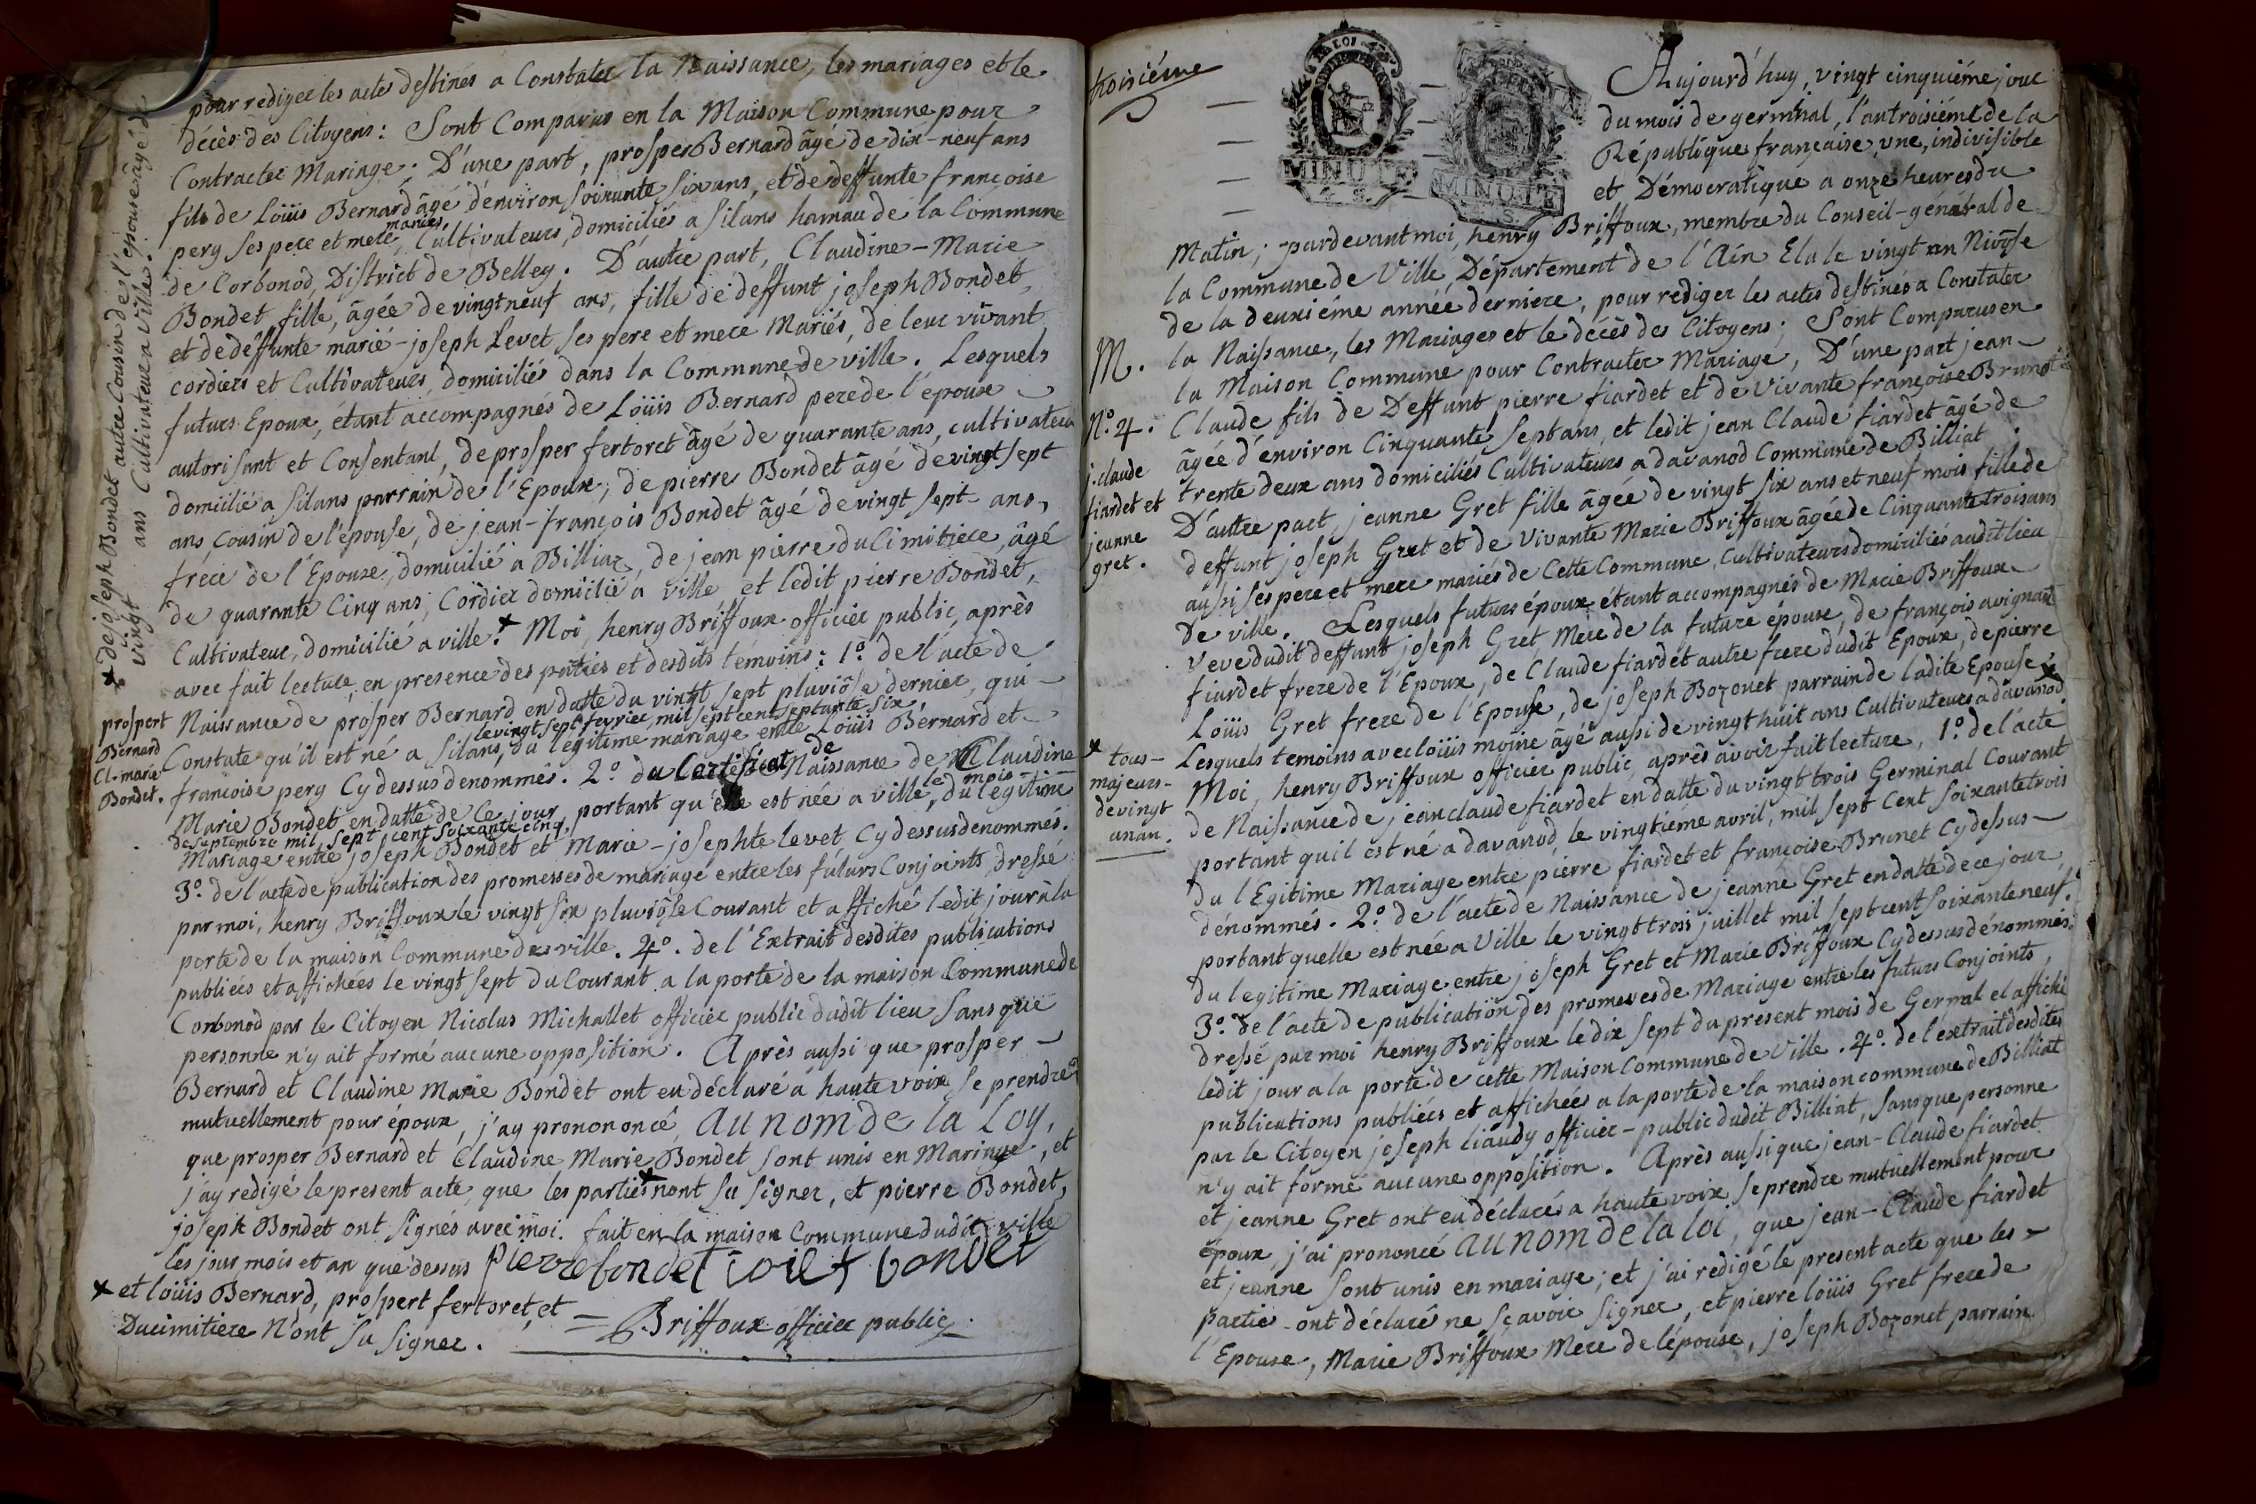 pour rediger les actes destinés a Constater la Naissance, les mariages et le
décès des Citoyens : Sont Comparus en la Maison Commune pour
Contracter Mariage : D'une part, prosper Bernard âgé de dix-neuf ans
fils de Loüis Bernard âgé d'environ soixante six ans, et de deffunte françoise
pery ses pere et mere mariés, Cultivateurs, domiciliés a silans hamau de la Commune
de Corbonod, District de Belley. D'autre part, Claudine-Marie
Bondet, fille, âgée de vingt neuf ans, fille de deffunt joseph Bondet
et de deffunte marie-joseph Levet ses pere et mere Mariés, de leur vivant
cordiers et Cultivateurs, domiciliés dans la Commune de ville. Lesquels
futurs Epoux, étant accompagnés de Loüis Bernard pere de l'epoux
autorisant et Consentant, de prosper fertoret âgé de quarante ans, cultivateur
domicilié a silans parrain de l'Epoux, de pierre Bondet âgé de vingt sept
ans, Cousin de l'épouse, de jean-françois Bondet âgé de vingt sept ans,
frere de l'Epouse, domicilié a Billiaz, de jean pierre ducimitiere, âgé
de quarante Cinq ans, Cordier domicilié a ville et ledit pierre Bondet,
Cultivateur, domicilié a ville. x Moi, henry Briffoux officier public, après
avec fait lecture en presence des parties et desdits temoins : 1.º de l'acte de
Naissance de prosper Bernard en datte du vingt sept pluviôse dernier, qui
Constate qu'il est né a silans, le vingt sept fevrier mil sept cent septante six du légitime mariage entre Loüis Bernard et
françoise pery Cy dessus denommés. 2.º du Certificat de Naissance de Claudine
Marie Bondet en datte de Ce jour, portant qu'elle est née a ville, le mois du légitime
de septembre mil sept cent soixante cinq,
Mariage entre joseph Bondet et Marie-josephte levet Cy dessus denommés.
3.º de l'acte de publication des promesses de mariage entre les futurs Conjoints, dressé
par moi, henry Briffoux le vingt six pluviôse Courant et affiché ledit jour à la
porte de la maison Commune de ville. 4.º de l'Extrait desdites publications
publiées et affichées le vingt sept du Courant a la porte de la maison Commune de
Corbonod par le Citoyen Nicolas Michallet officier public dudit lieu sans que
personne n'y ait formé aucune opposition. Après aussi que prosper
Bernard et Claudine Marie Bondet ont eu déclaré a haute voix se prendre
mutuellement pour époux, j'ay pronononcé, au nom de la Loy,
que prosper Bernard et Claudine Marie Bondet sont unis en Mariage, et
j'ay redigé le present acte, que les parties x nont su signer, et pierre Bondet,
joseph Bondet ont signés avec moi. fait en la maison Commune dudit ville
les jour mois et an que dessus pierre bondet
x et loüis Bernard, prospert fertoret, et
Ducimitiere N'ont su signer. Briffoux officier public.
x de joseph Bondet autre Cousin de l'épouse âgé de
vingt ans Cultivateur a ville.
prospert
Bernard
Cl. marie
Bondet.
troisième
MINUTE
MINUTE
Aujourd'huy, vingt cinquiéme jour
du mois de germinal, l'an troisiéme de la
République française, une, indivisible
et Démocratique a onze heures du
Matin ; pardevant moi, henry Briffoux, membre du Conseil-general de
la Commune de Ville, Département de l'Ain Elu le vingt un Nivôse
de la deuxiéme année derniere, pour rediger les actes destinés a Constater
la Naissance, les Mariages et le décès des Citoyens ; Sont Comparus en
la Maison Commune pour Contracter Mariage, D'une part jean
Claude fils de Deffunt pierre fiardet et de Vivante françoise Brunet
âgée d'environ Cinquante sept ans, et ledit jean Claude fiardet âgé de
trente deux ans domiciliés Cultivateurs a davanod Commune de Billiat.
D'autre part, jeanne Gret fille âgée de vingt six ans et neuf mois fille de
deffunt joseph Gret et de Vivante Marie Briffoux âgée de Cinquante trois ans
aussi ses pere et mere mariés de Cette Commune, Cultivateurs domiciliés audit lieu
de ville. Lesquels futurs époux étant accompagnés de Marie Briffoux
veve dudit deffunt joseph Gret, Mere de la future épouse, de françois avignant
fiardet frere de l'Epoux, de Claude fiardet autre frere dudit Epoux, de pierre
Loüis Gret frere de l'Epouse, de joseph Bozonet parrain de ladite Epouse x
Lesquels temoins avec loüis moine âgé aussi de vingt huit ans Cultivateurs a davanod
Moi, henry Briffoux officier public, après avoir fait lecture, 1.º de l'acte
de Naissance de jean claude fiardet en datte du vingt trois Germinal Courant
portant quil est né a davanod, le vingtiéme avril, mil sept Cent soixante trois
du lEgitime Mariage entre pierre fiardet et françoise Brunet Cy dessus
dénommés. 2.º de l'acte de Naissance de jeanne Gret en datte de ce jour,
portant quelle est née a Ville le vingt trois juillet mil sept cent soixante neuf.
du legitime Mariage entre joseph Gret et Marie Briffoux Cy dessus dénommés.
3.º de l'acte de publication des promeses de Mariage entre les futurs Conjoints,
dressé par moi henry Briffoux le dix sept du present mois de Germal et affiché
ledit jour a la porte de cette Maison Commune de Ville. 4.º de l'extrait desdites
publications publiées et affichées a la porte de la maison commune de Billiat
par le Citoyen joseph liaudy officier-public dudit Billiat, sans que personne
n'y ait formé aucune opposition. Après aussi que jean-Claude fiardet
et jeanne Gret ont eu déclaré a haute voix se prendre mutuellement pour
époux, j'ai prononcé au nom de la loi, que jean-Claude fiardet
et jeanne sont unis en mariage ; et j'ai redigé le present acte que les
partie ont déclaré ne sçavoir signer, et pierre loüis Gret frere de
l'Epouse, Marie Briffoux Mere de l'épouse, joseph Bozonet parrain
M.
Nº. 4.
j. claude
fiardet et
jeanne
gret.
x tous
majeurs
de vingt
un an.